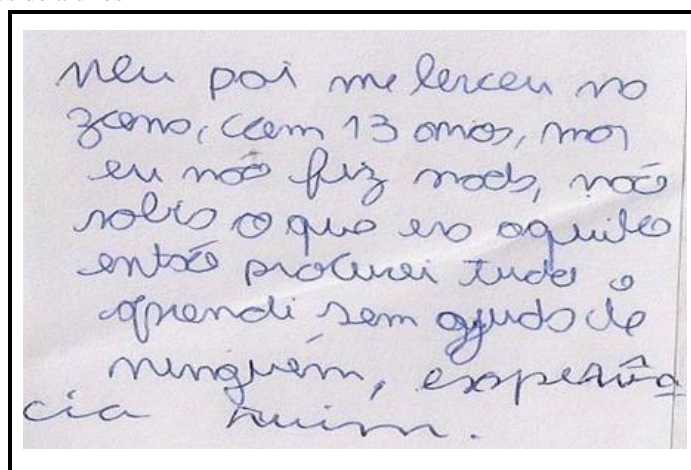 Meu pai me levou na
zona, com 13 anos, mas
eu não fiz nada, não
sabia o que era aquilo
então procurei tudo e
aprendi sem ajuda de
ninguém, experiên
cia ruim.